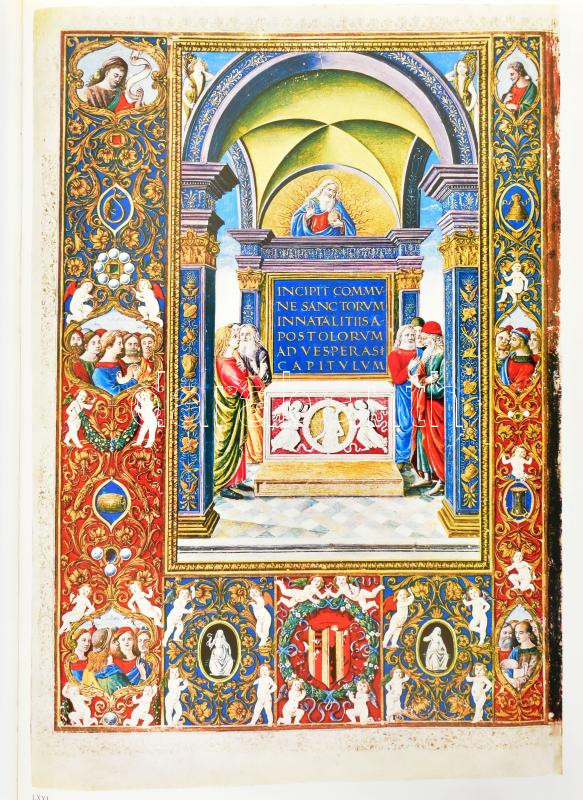 INCIPIT COMMV
NE SANCTORVM
INNATALITIIS A
POSTOLORVM
AD VESPERAS
CAPITVLVM
LXXI